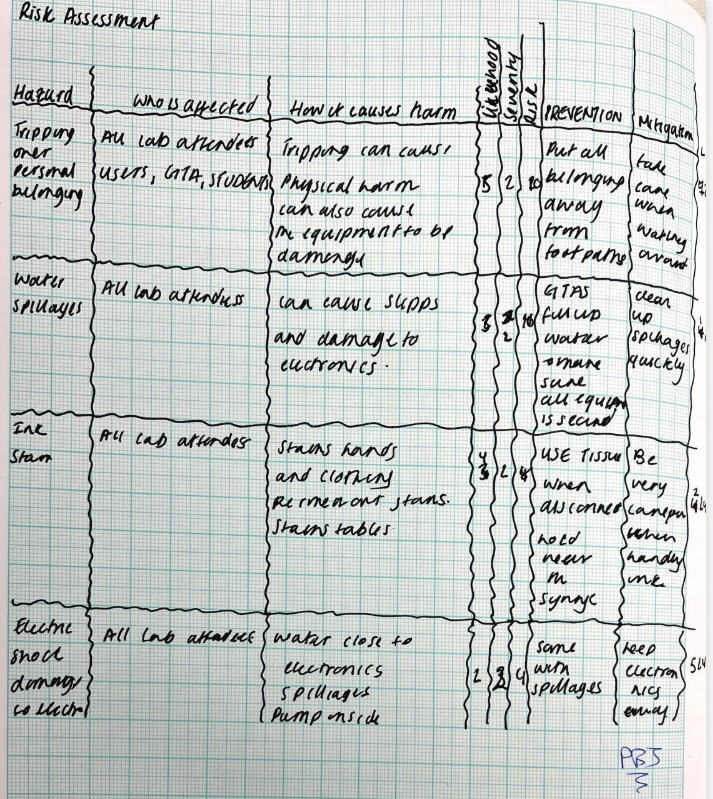 Risk Assessment
Hazard who is affected How it causes harm Likelihood Severity Risk PREVENTION Mitigation
Tripping over personal belonging
All lab attendees
users, GTA, STUDENTS
Tripping can cause
Physical harm
can also cause
the equipment to be
damage
5 2 10
Put all
belonging
away
from
footpaths
take
care
when
walking
around
Water
spillages
All lab attendess
can cause slipps
and damage to
electronics.
2
GTAS
full up
water
sure
all equipm
is secure
clean
up
spillages
quickly
Ink
Stain
All lab attendees
Stains hands
and clothing
permenant stans.
Stains tables
4
2
USE Tissue
when
disconnect
hold
near
Be
very
careful
when
handly
ink
Electric
shock
damage
to electro
All lab attendees
water close to
electronics
spilliages
Pump inside
2
4
same
with
spillages
keep
electron
nics
away
PBJ